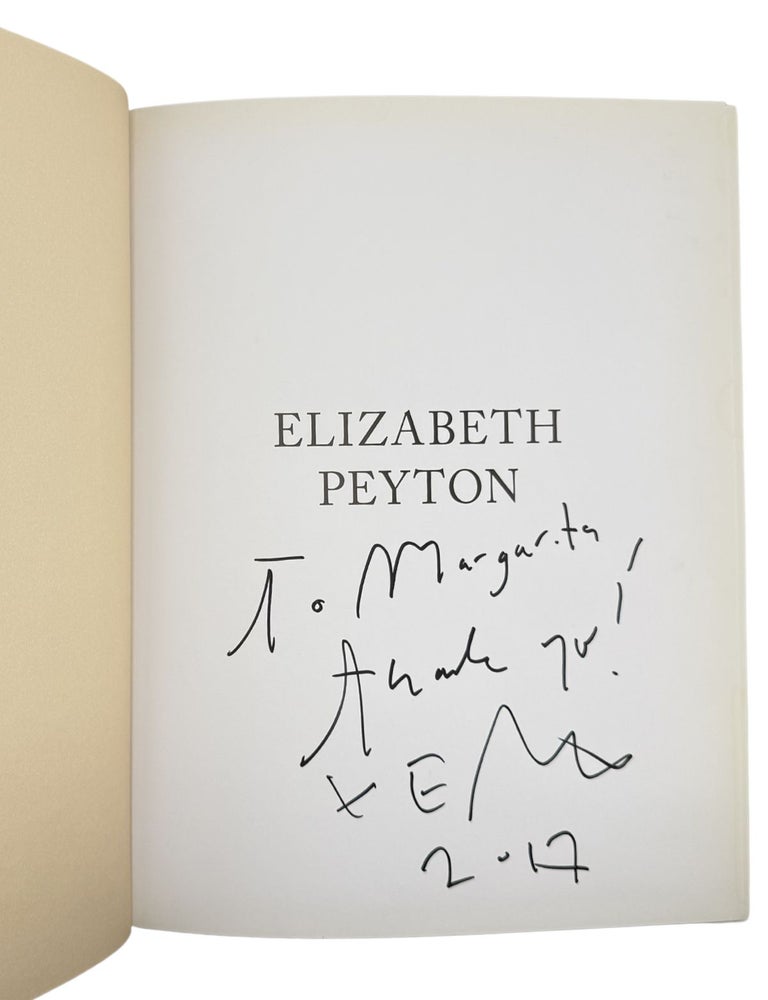 ELIZABETH
PEYTON
To Margarita
Thank you!
x E
2017